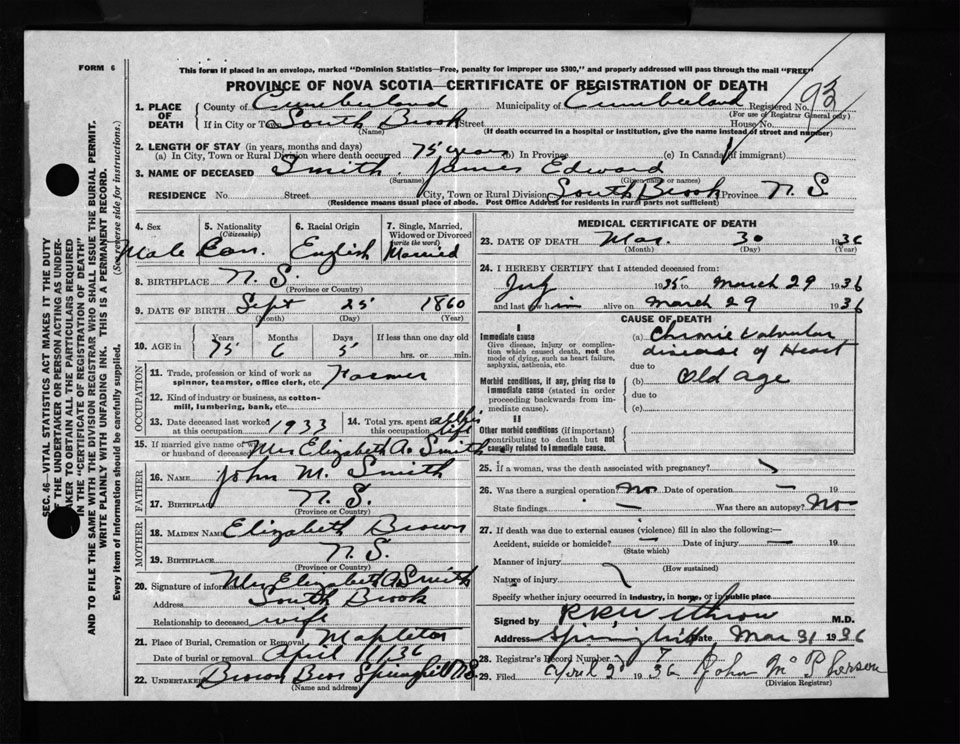 FORM 6
This form if placed in an envelope, marked "Dominion Statistics—Free, penalty for improper use $300," and properly addressed will pass through the mail "FREE"
PROVINCE OF NOVA SCOTIA—CERTIFICATE OF REGISTRATION OF DEATH
93
1. PLACE OF DEATH
County of Cumberland Municipality of Cumberland Registered No.
(For use of Registrar General only)
If in City or Town South Brook Street House No.
(Name) (If death occurred in a hospital or institution, give the name instead of street and number)
2. LENGTH OF STAY (in years, months and days)
(a) In City, Town or Rural Division where death occurred 75 years (b) In Province (c) In Canada (if immigrant)
3. NAME OF DECEASED Smith James Edward
(Surname) (Given name or names)
RESIDENCE No Street City, Town or Rural Division South Brook Province N. S.
(Residence means usual place of abode. Post Office Address for residents in rural parts not sufficient)
4. Sex 5. Nationality (Citizenship) 6. Racial Origin 7. Single, Married, Widowed or Divorced (write the word)
Male Can. English Married
8. BIRTHPLACE N. S.
(Province or Country)
9. DATE OF BIRTH Sept 25 1860
(Month) (Day) (Year)
10. AGE in Years Months Days If less than one day old
75 6 5 hrs. or min.
OCCUPATION
11. Trade, profession or kind of work as spinner, teamster, office clerk, etc. Farmer
12. Kind of industry or business, as cotton-mill, lumbering, bank, etc.
13. Date deceased last worked at this occupation 1933 14. Total yrs. spent in this occupation all his life
15. If married give name of wife or husband of deceased Mrs Elizabeth A. Smith
FATHER
16. NAME John M. Smith
17. BIRTHPLACE N. S.
(Province or Country)
MOTHER
18. MAIDEN NAME Elizabeth Brown
19. BIRTHPLACE N. S.
(Province or Country)
20. Signature of informant Mrs Elizabeth A Smith
Address South Brook
Relationship to deceased wife
21. Place of Burial, Cremation or Removal Mapleton
Date of burial or removal April 1/36
22. UNDERTAKER Brown Bros Springhill N.S.
(Name and address)
MEDICAL CERTIFICATE OF DEATH
23. DATE OF DEATH Mar. 30 1936
(Month) (Day) (Year)
24. I HEREBY CERTIFY that I attended deceased from:
1935 to March 29 1936
and last saw him alive on March 29 1936
CAUSE OF DEATH
I
Immediate cause
Give disease, injury or complication which caused death, not the mode of dying, such as heart failure, asphyxia, asthenia, etc.
(a) Chronic Valvular disease of Heart
due to
Morbid conditions, if any, giving rise to immediate cause (stated in order proceeding backwards from immediate cause).
(b) Old age
due to
(c)
II
Other morbid conditions (if important) contributing to death but not causally related to immediate cause.
25. If a woman, was the death associated with pregnancy?
26. Was there a surgical operation? No Date of operation — 19
State findings — Was there an autopsy? No
27. If death was due to external causes (violence) fill in also the following:—
Accident, suicide or homicide? — Date of injury — 19
(State which)
Manner of injury
(How sustained)
Nature of injury
Specify whether injury occurred in industry, in home, or in public place
Signed by M.D.
Address Springhill Date Mar 31 1936
28. Registrar's Record Number 7
29. Filed April 2 1936 John McPherson
(Division Registrar)
SEC. 46—VITAL STATISTICS ACT MAKES IT THE DUTY
OF THE UNDERTAKER OR PERSON ACTING AS UNDERTAKER TO OBTAIN ALL THE PARTICULARS REQUIRED
IN THE "CERTIFICATE OF REGISTRATION OF DEATH"
AND TO FILE THE SAME WITH THE DIVISION REGISTRAR WHO SHALL ISSUE THE BURIAL PERMIT.
WRITE PLAINLY WITH UNFADING INK. THIS IS A PERMANENT RECORD.
Every item of Information should be carefully supplied. (See reverse side for instructions.)